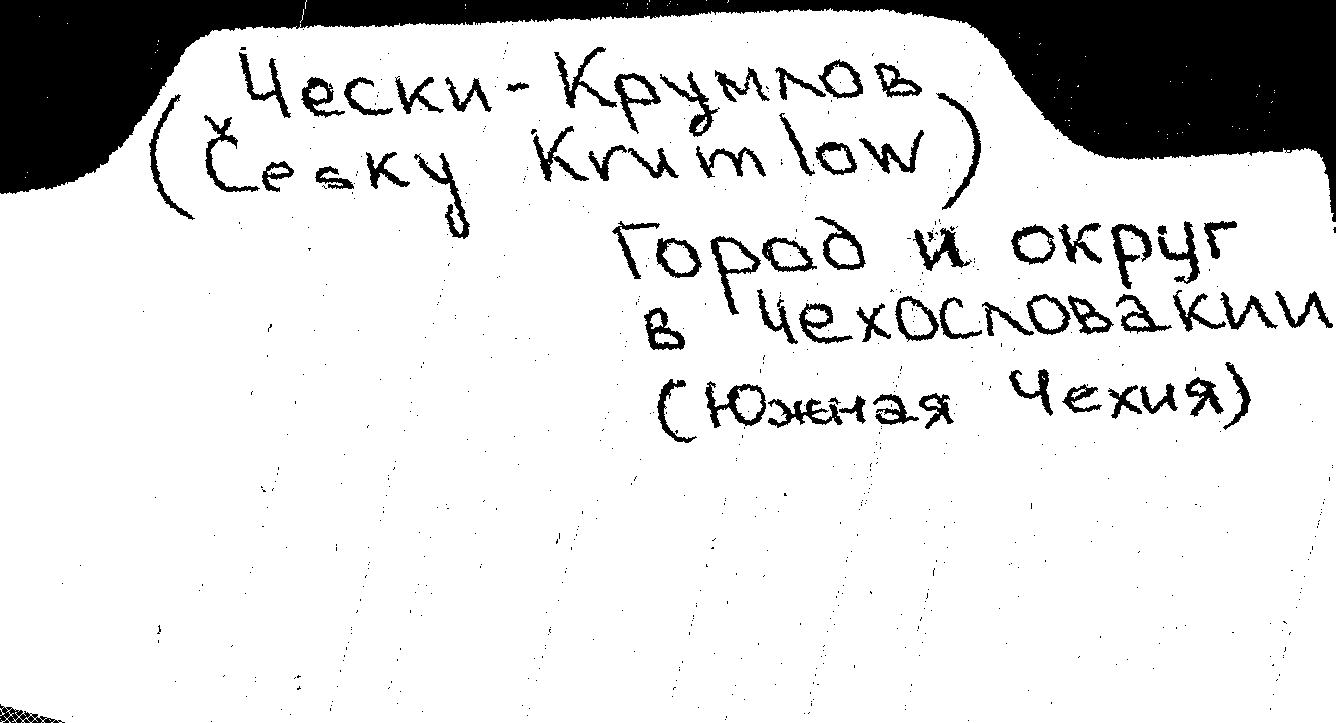 Чески-Крумлов
(Česky Krumlow)
Город и округ
в Чехословакии
(Южная Чехия)